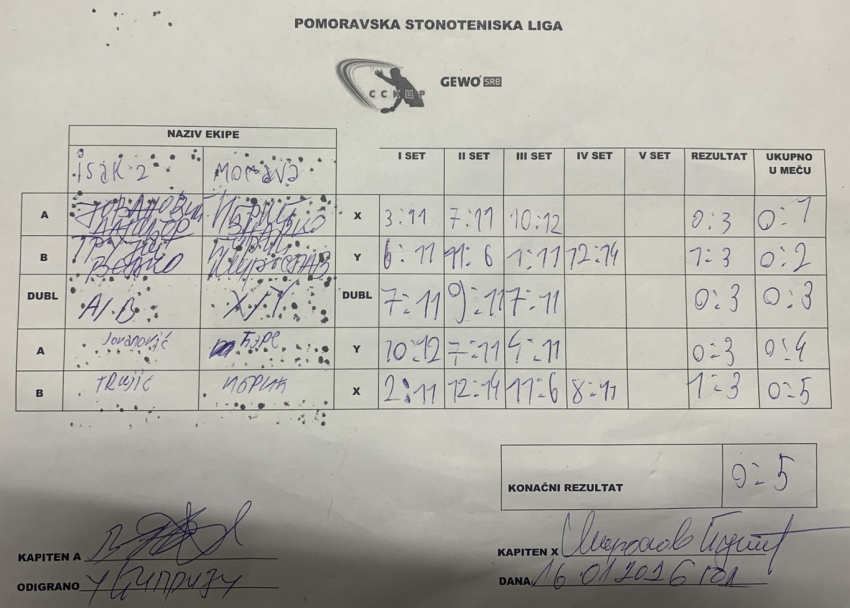 POMORAVSKA STONOTENISKA LIGA
ССКИР GEWO SRB
NAZIV EKIPE
isak-2 MORAVA I SET II SET III SET IV SET V SET REZULTAT UKUPNO U MEČU
A X 3:11 7:11 10:12 0:3 0:1
B Y 6:11 11:6 1:11 12:14 1:3 0:2
DUBL A/B X/Y DUBL 7:11 9:11 7:11 0:3 0:3
A Jovanović Y 10:12 7:11 4:11 0:3 0:4
B TRUJIĆ X 2:11 12:14 11:6 8:11 1:3 0:5
KONAČNI REZULTAT 0:5
KAPITEN A KAPITEN X
ODIGRANO У DANA 16 01 2026